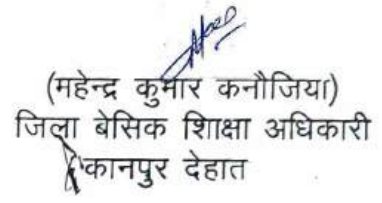 (महेन्द्र कुमार कनौजिया)
जिला बेसिक शिाक्षा अधिकारी
कानपुर देहात